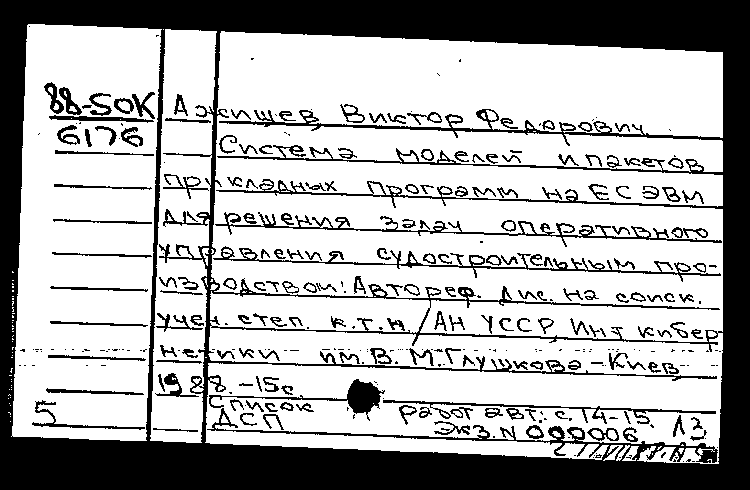 88-5ок Ажищев, Виктор Федорович.
6176 Система моделей и пакетов
прикладных программ на ЕС ЭВМ
для решения задач оперативного
управления судостроительным про-
изводством: Автореф. дис. на соиск.
учен. степ. к.т.н. / АН УССР, Ин-т кибер-
нетики им. В. М. Глушкова. - Киев,
1988. - 15 с.
5 Список работ авт.: с. 14-15. 13
ДСП Экз. N 000006